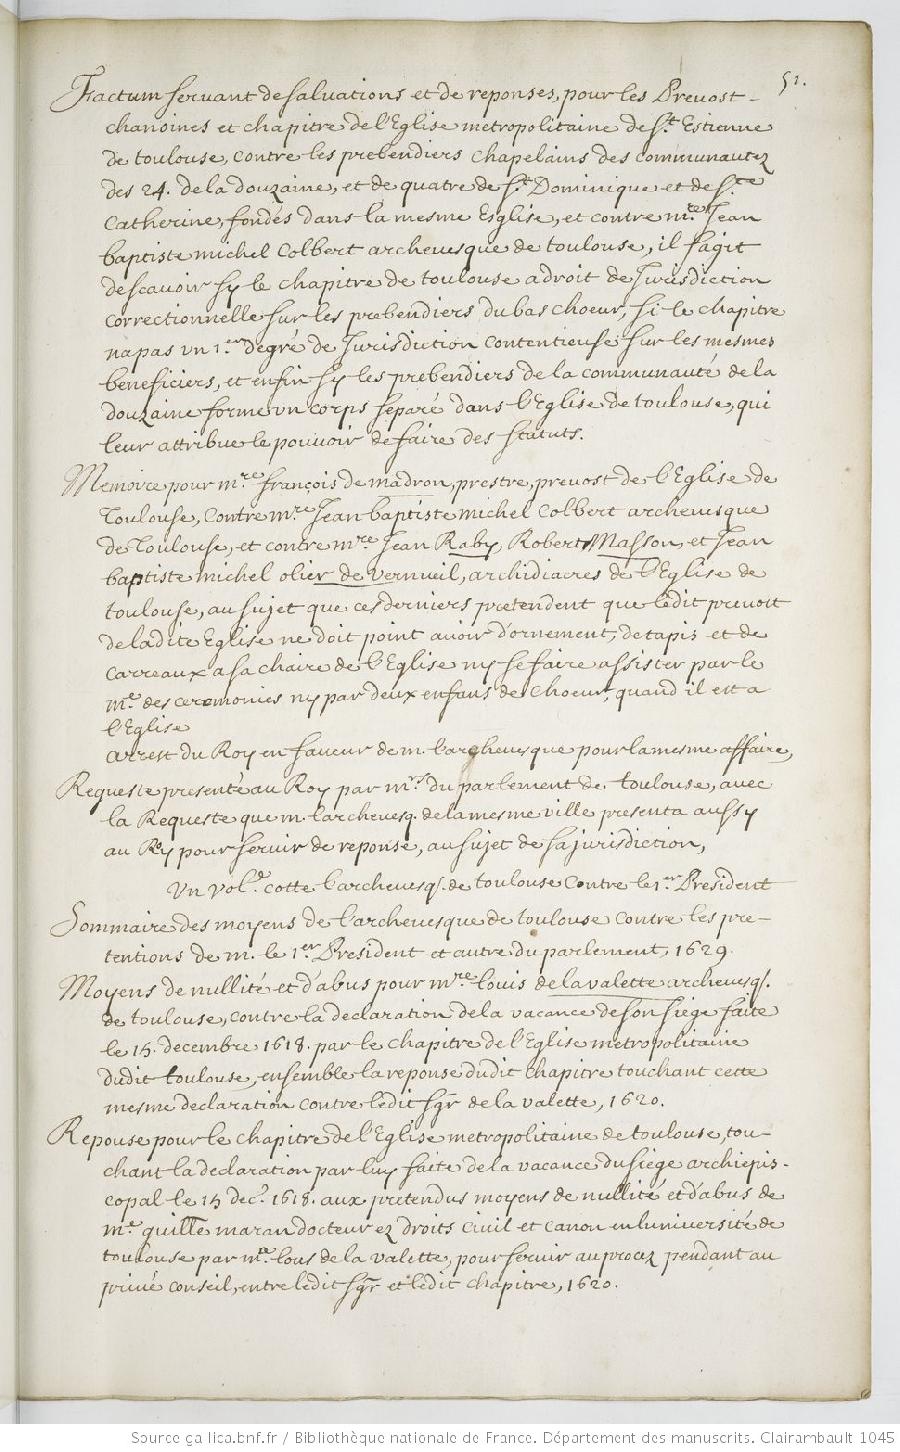 51.
Factum servant de salvations et de reponses, pour les Prevost
chanoines et chapitre de l'Eglise metropolitaine de St. Estienne
de toulouse, contre les prebendiers chapelains des communautez
des 24. de la douzaine, et de quatre de St. Dominique et de Ste
Catherine, fondés dans la mesme Esglise, et contre mre Jean
baptiste michel Colbert archevesque de toulouse, il s'agit
descavoir sy le chapitre de toulouse a droit de Jurisdiction
correctionnelle sur les prebendiers du bas choeur, si le chapitre
na pas un 1.er degré de Jurisdiction contentieuse sur les mesmes
beneficiers, et enfin sy les prebendiers de la communauté de la
douzaine forme un corps separé dans l'Eglise de toulouse, qui
leur attribue le pouvoir de faire des statuts.
Memoire pour mre françois de madron, prestre, prevost de l'Eglise de
Toulouse, contre mre Jean baptiste michel Colbert archevesque
de Toulouse, et contre mre Jean Raby, Robert Masson, et Jean
baptiste michel olier de verneuil, archidiacres de l'Eglise de
toulouse, au sujet que ces derniers pretendent que ledit prevost
de ladite Eglise ne doit point avoir d'ornement, de tapis et de
carreaux a sa chaire de l'Eglise ny se faire assister par le
me. des ceremonies ny par deux enfans de choeur, quand il est a
l'Eglise
arrest du Roy en faveur de m. l'archevesque pour la mesme affaire,
Requeste presenté au Roy par mrs du parlement de toulouse, avec
la Requeste que m. larchevesq. de la mesme ville presenta aussy
au Roy pour servir de reponse, au sujet de sa jurisdiction,
Un vol.e cotté l'archevesq. de toulouse contre le 1.er President
Sommaire des moyens de l'archevesque de toulouse contre les pre-
tentions de m. le 1.er President et autre du parlement, 1629.
Moyens de nullité et d'abus pour mre louis de la valette archevesq.
de toulouse, contre la declaration de la vacance de son siege faite
le 15. decembre 1618. par le chapitre de l'Eglise metropolitaine
dudit toulouse, ensemble la reponse dudit chapitre touchant cette
mesme declaration contre ledit sgr de la valette, 1620.
Reponse pour le chapitre de l'Eglise metropolitaine de toulouse, tou-
chant la declaration par luy faite de la vacance du siege archiepis-
copal le 15 dec. 1618. aux pretendus moyens de nullité et d'abus de
me. guille maran docteur ez droits civil et canon en luniversité de
toulouse par mre lous de la valette, pour servir au procez pendant au
privé conseil, entre ledit sgr et ledit chapitre, 1620.
Source gallica.bnf.fr / Bibliothèque nationale de France. Département des manuscrits. Clairambault 1045